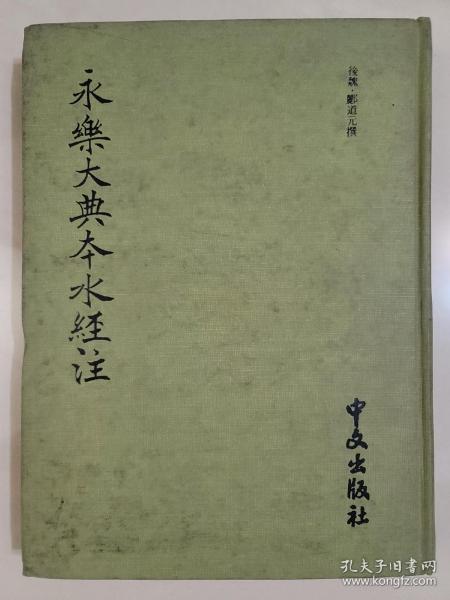 後魏·酈道元撰
永樂大典本水経注
中文出版社
孔夫子旧书网
www.kongfz.com